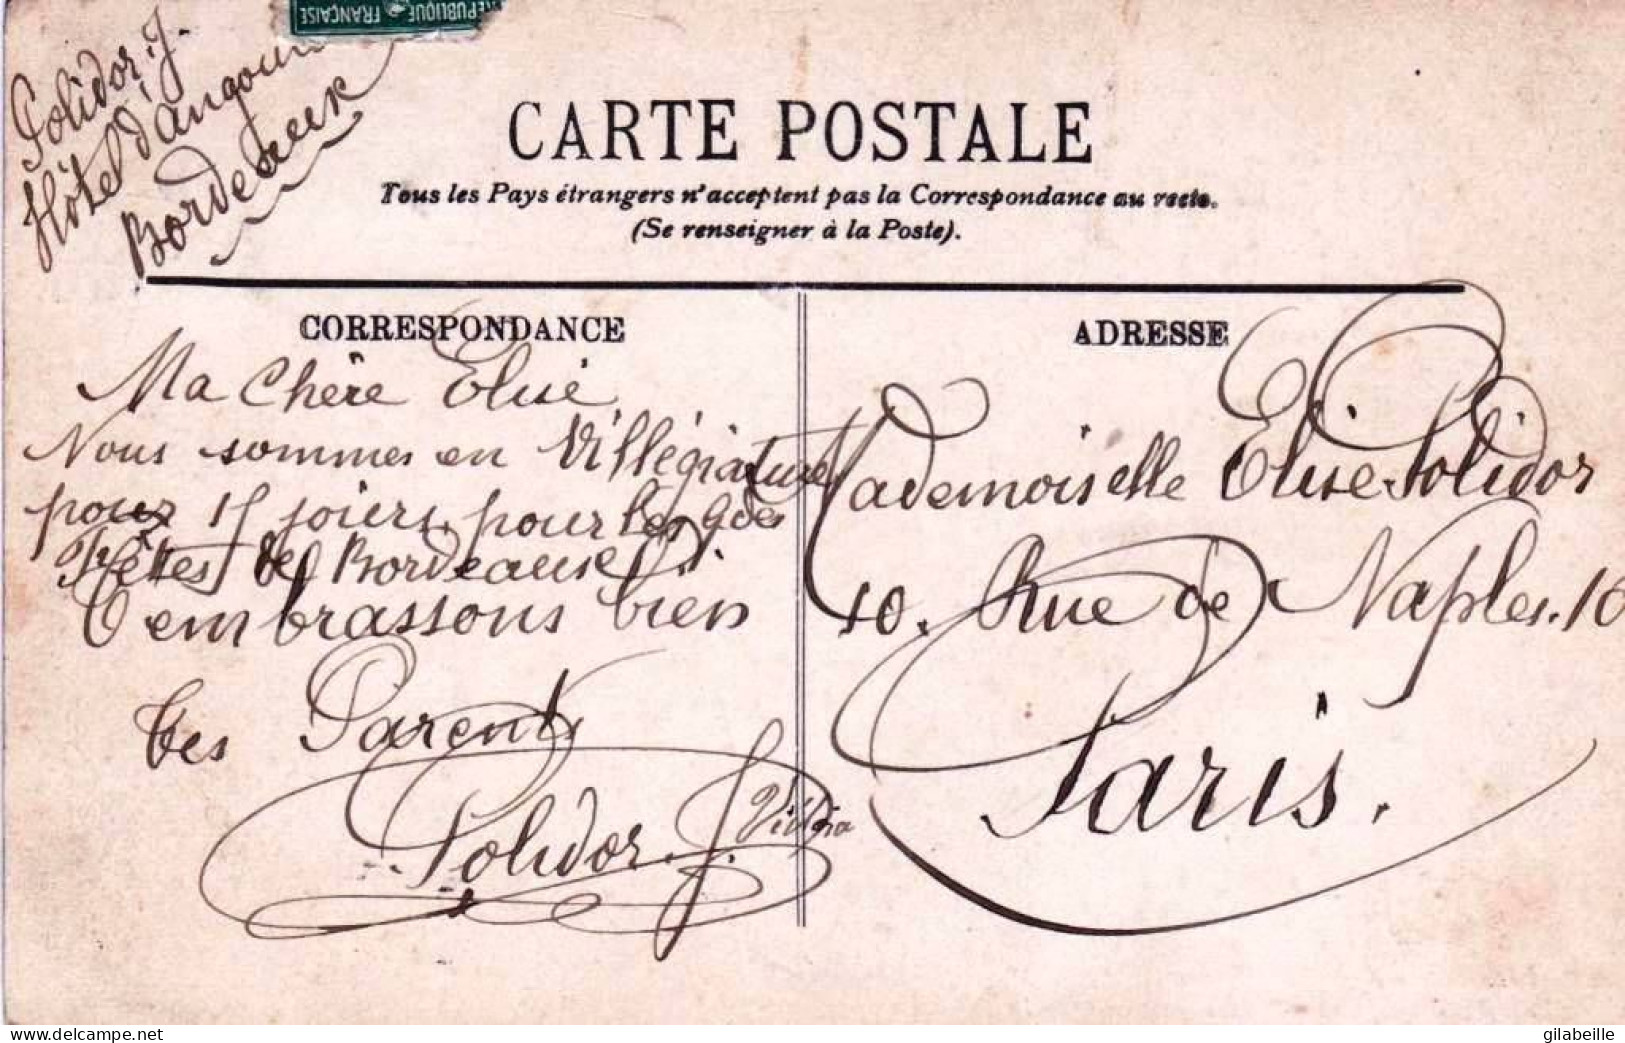 RÉPUBLIQUE FRANÇAISE
Polidor. J.
Hôtel d'angoul
Bordeaux
CARTE POSTALE
Tous les Pays étrangers n'acceptent pas la Correspondance au recto.
(Se renseigner à la Poste).
CORRESPONDANCE
Ma Chère Elise
Nous sommes en Villégiature
pour 15 jours, pour les gdes
Fêtes de Bordeaux
T'embrassons bien
Tes Parents
Polidor. J.
ADRESSE
Mademoiselle Elise Polidor
10. Rue de Naples. 10
Paris.
Delcampe.net
gilabeille